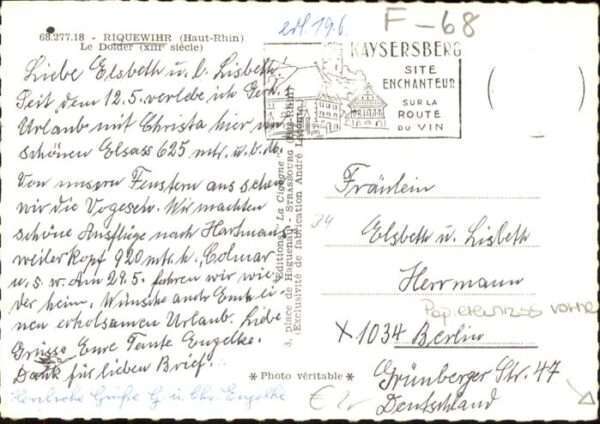 68.277.18 - RIQUEWIHR (Haut-Rhin)
Le Dolder (XIIIe siècle)
Liebe Elsbeth u. l. Lisbeth.
Seit dem 12.5. verlebe ich
Urlaub mit Christa hier im
schönen Elsass 625 mtr. ü. d. M.
Von unsern Fenstern aus sehen
wir die Vogesen. Wir machten
schöne Ausflüge nach Hartmanns
weilerkopf 920 mtr. h. Colmar
u. s. w. Am 29.5. fahren wir wie
der heim. Wünsche auch Euch ei
nen erholsamen Urlaub. Liebe
Grüsse Eure Tante Engelke.
Dank für lieben Brief.
Herzliche Grüße G. u. Chr. Engelke
Editions "La Cigogne"
3, place de Haguenau - STRASBOURG (Bas-Rhin)
(Exclusivité de fabrication André
* Photo véritable *
F-68
KAYSERSBERG
SITE
ENCHANTEUR
SUR LA
ROUTE
DU VIN
Fräulein
Elsbeth u. Lisbeth
Herrmann
vorne
X 1034 Berlin
Grünberger Str. 47
Deutschland